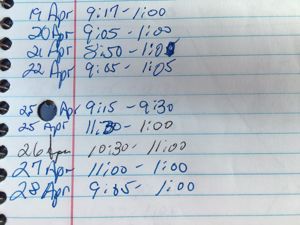 19 Apr 9:17 - 1:00
20 Apr 9:05 - 1:00
21 Apr 8:50 - 1:05
22 Apr 9:05 - 1:05
25 Apr 9:15 - 9:30
25 Apr 11:30 - 1:00
26 Apr 10:30 - 11:00
27 Apr 11:00 - 1:00
28 Apr 9:05 - 1:00